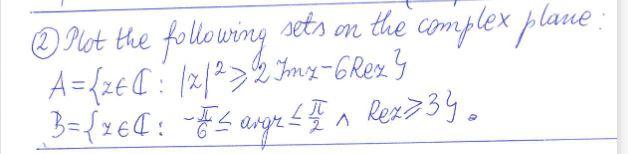 ② Plot the following sets on the complex plane:
A={z∈ℂ: |z|²⩾2Imz-6Rez}
B={z∈ℂ: -π/6≤argz≤π/2 ∧ Rez⩾3}.